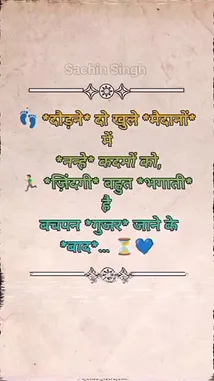 Sachin Singh
👣 *दौड़ने* दो खुले *मैदानों*
में
*नन्हे* कदमों को,
🏃‍♂️ *ज़िंदगी* बहुत *भगाती*
है
बचपन *गुजर* जाने के
*बाद*... ⏳💙